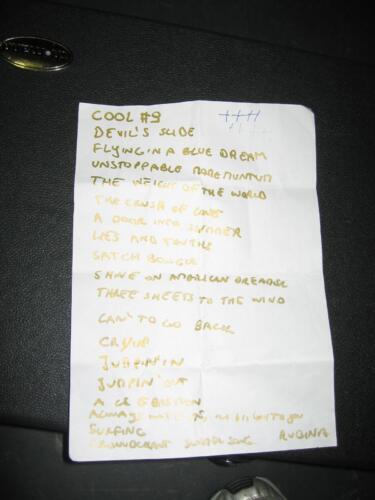 COOL #9
DEVIL'S SLIDE
FLYING IN A BLUE DREAM
UNSTOPPABLE MOMENTUM
THE WEIGHT OF THE WORLD
THE CRUSH OF LOVE
A DOOR INTO SUMMER
LIES AND TRUTHS
SATCH BOOGIE
SHINE ON AMERICAN DREAMER
THREE SHEETS TO THE WIND
CAN'T GO BACK
CRYIN'
JUMPIN' IN
JUMPIN' OUT
A CELEBRATION
ALWAYS WITH
SURFING
CROWDCHANT SUMMER SONG RUBINA